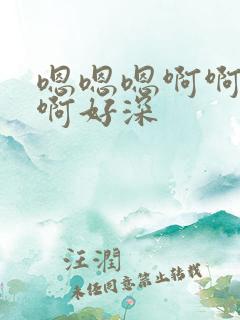 嗯嗯嗯啊啊
啊好深
汪潤
未经同意禁止转载